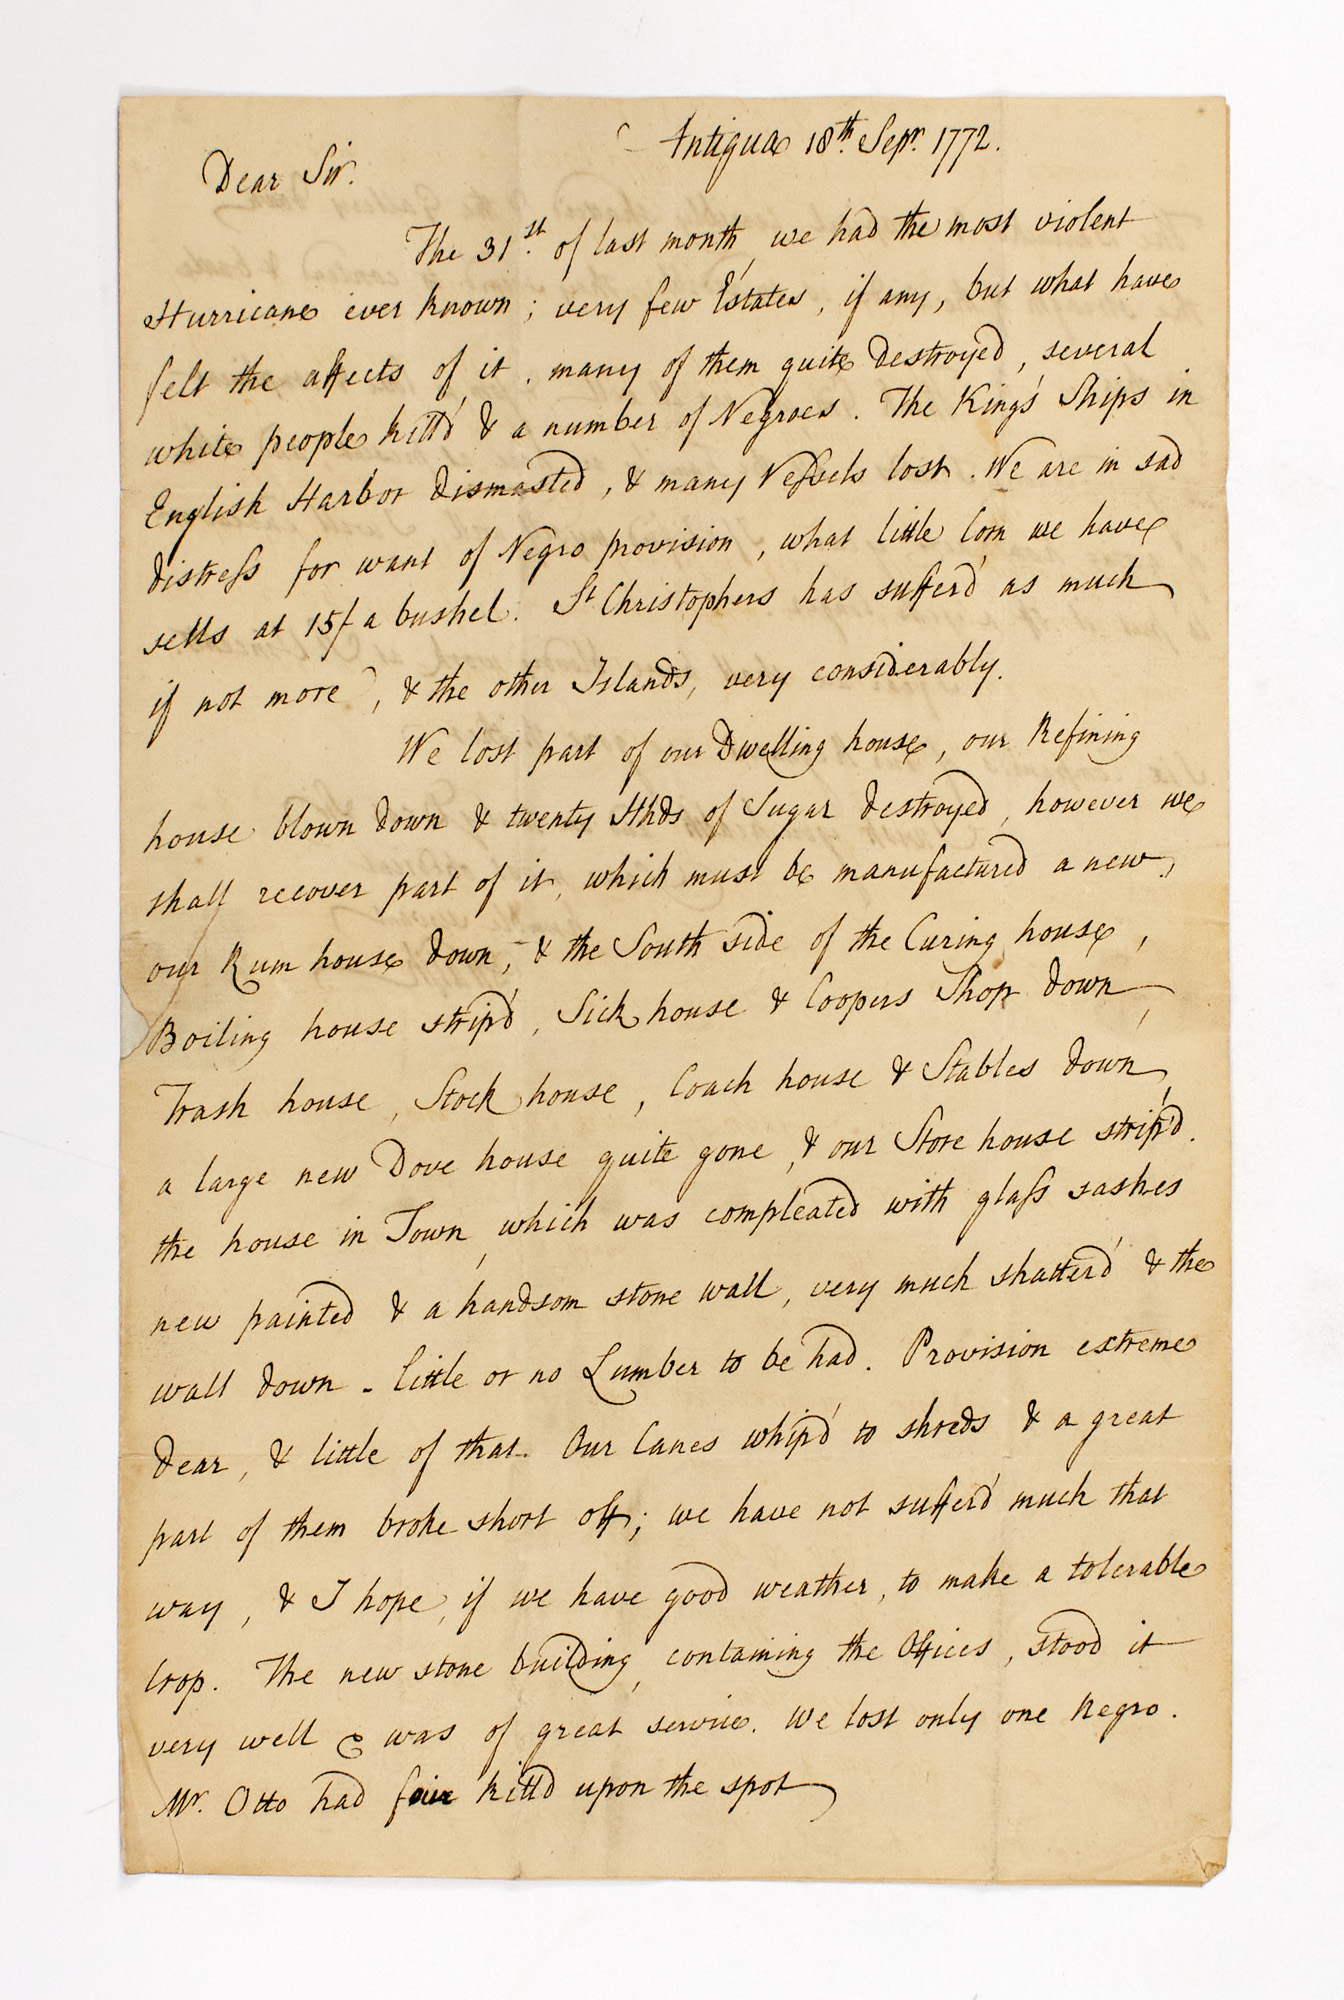 Antigua 18th. Sepr. 1772.
Dear Sir.
The 31st. of last month, we had the most violent
Hurricane ever known; very few Estates, if any, but what have
felt the affects of it, many of them quite destroyed, several
white people kill'd & a number of Negroes. The King's Ships in
English Harbor dismasted, & many Vessels lost. We are in sad
distress for want of Negro provision, what little Corn we have
sells at 15/ a bushel. St Christophers has suffer'd as much
if not more, & the other Islands, very considerably.
We lost part of our Dwelling house, our Refining
house blown down & twenty Hhds of Sugar destroyed, however we
shall recover part of it, which must be manufactured a new,
our Rum house down, & the South side of the Curing house,
Boiling house strip'd, Sick house & Coopers Shop down,
Trash house, Stock house, Coach house & Stables down,
a large new Dove house quite gone, & our Store house strip'd.
the house in Town, which was compleated with glass sashes
new painted & a handsom stone wall, very much shatter'd & the
wall down - little or no Lumber to be had. Provision extreme
dear, & little of that. Our Canes whip'd to shreds & a great
part of them broke short off; we have not suffer'd much that
way, & I hope, if we have good weather, to make a tolerable
Crop. The new stone building, containing the Offices, stood it
very well & was of great service. We lost only one Negro.
Mr. Otto had kill'd upon the spot